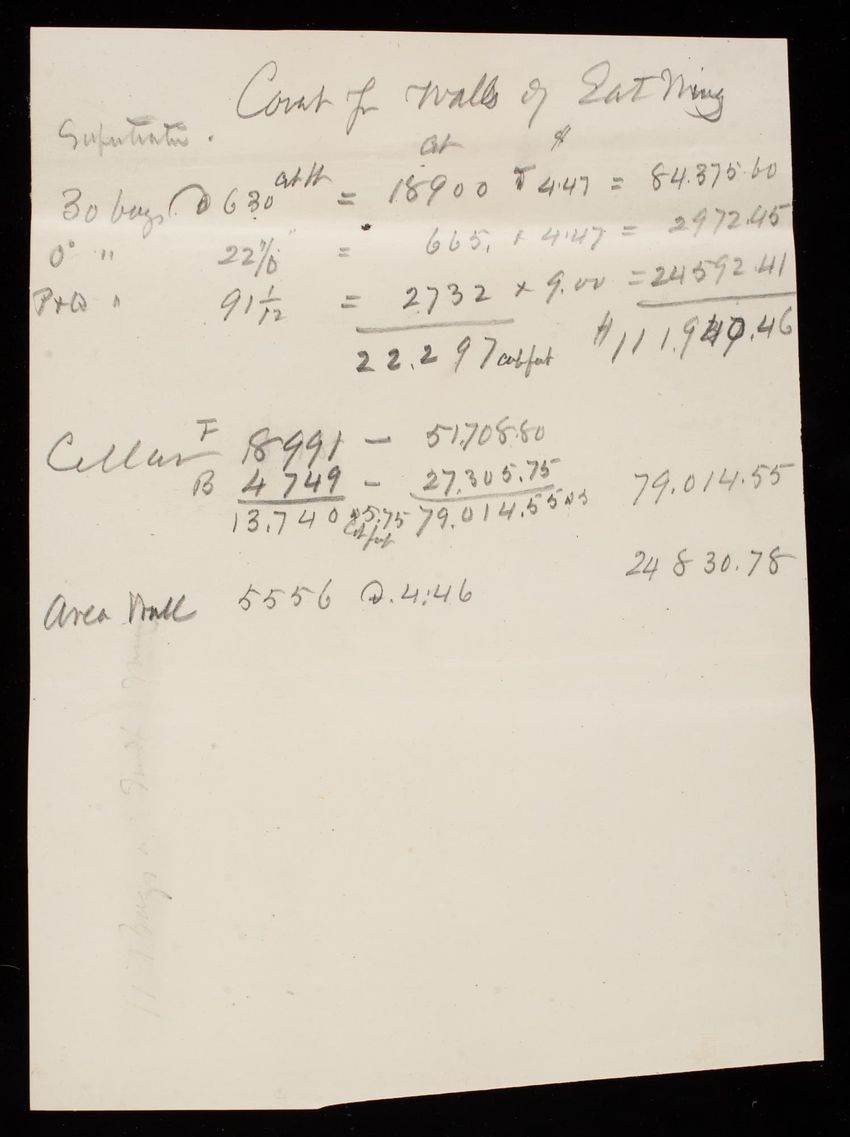 Count for Walls of East Wing
Superstructure.
cft $
30 bays @ 630 cft ft = 18900 @ 4.47 = 84.375.60
0° " 22 1/6 " = 665. x 4.47 = 2972.45
P+Q " 91 1/12 = 2732 x 9.00 = 24592.41
22.297 cub feet $111.940.46
Cellar F 18991 — 51708.80
B 4749 — 27.305.75 79.014.55
13.740 @ 5.75 79.014.55
Cub feet
24830.78
Area Wall 5556 @. 4.46